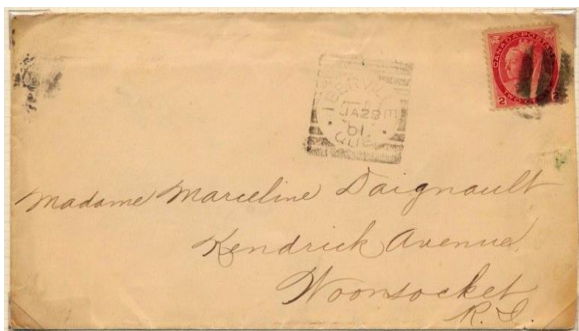 CANADA POSTAGE
2
IBERVILLE
JA 29
01
QUE
Madame Marceline Daignault
Kendrick Avenue
Woonsocket
R.I.